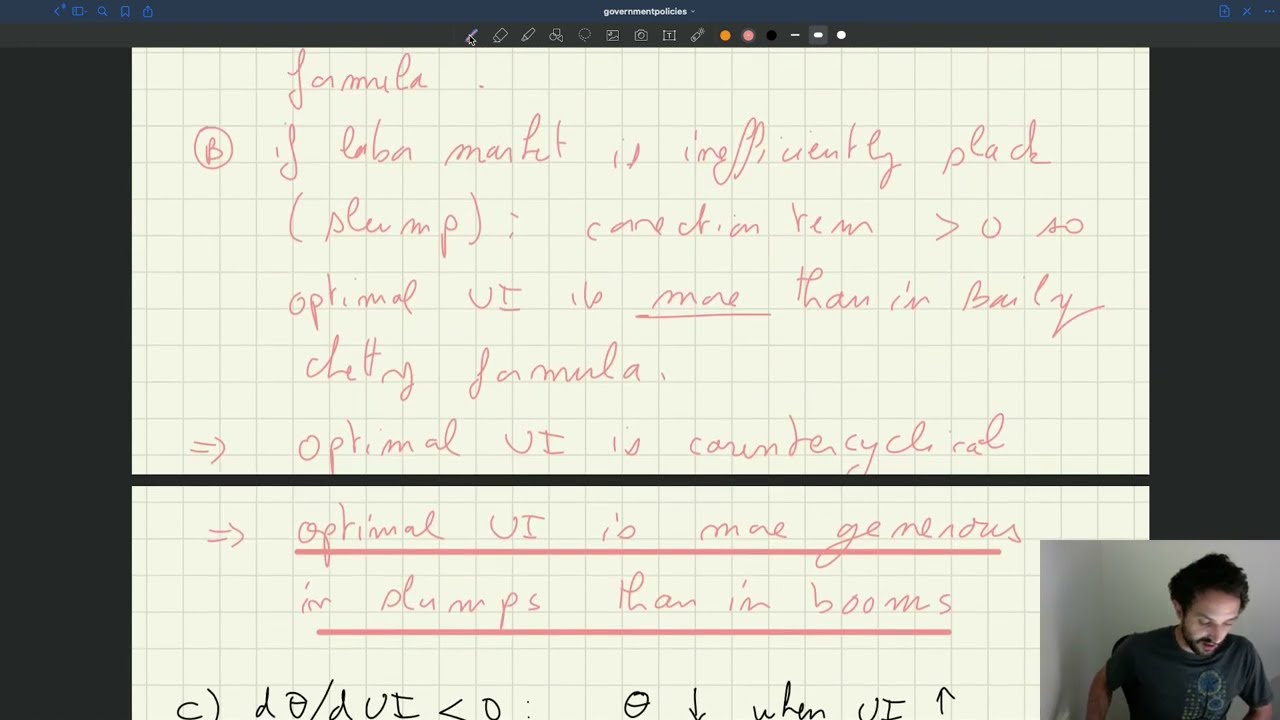 governmentpolicies
formula.
B if labor market is inefficiently slack
(slump): correction term > 0 so
optimal UI is more than in Baily
chetty formula.
⇒ optimal UI is countercyclical
⇒ optimal UI is more generous
in slumps than in booms
c) dθ/dUI < 0 : θ ↓ when UI ↑